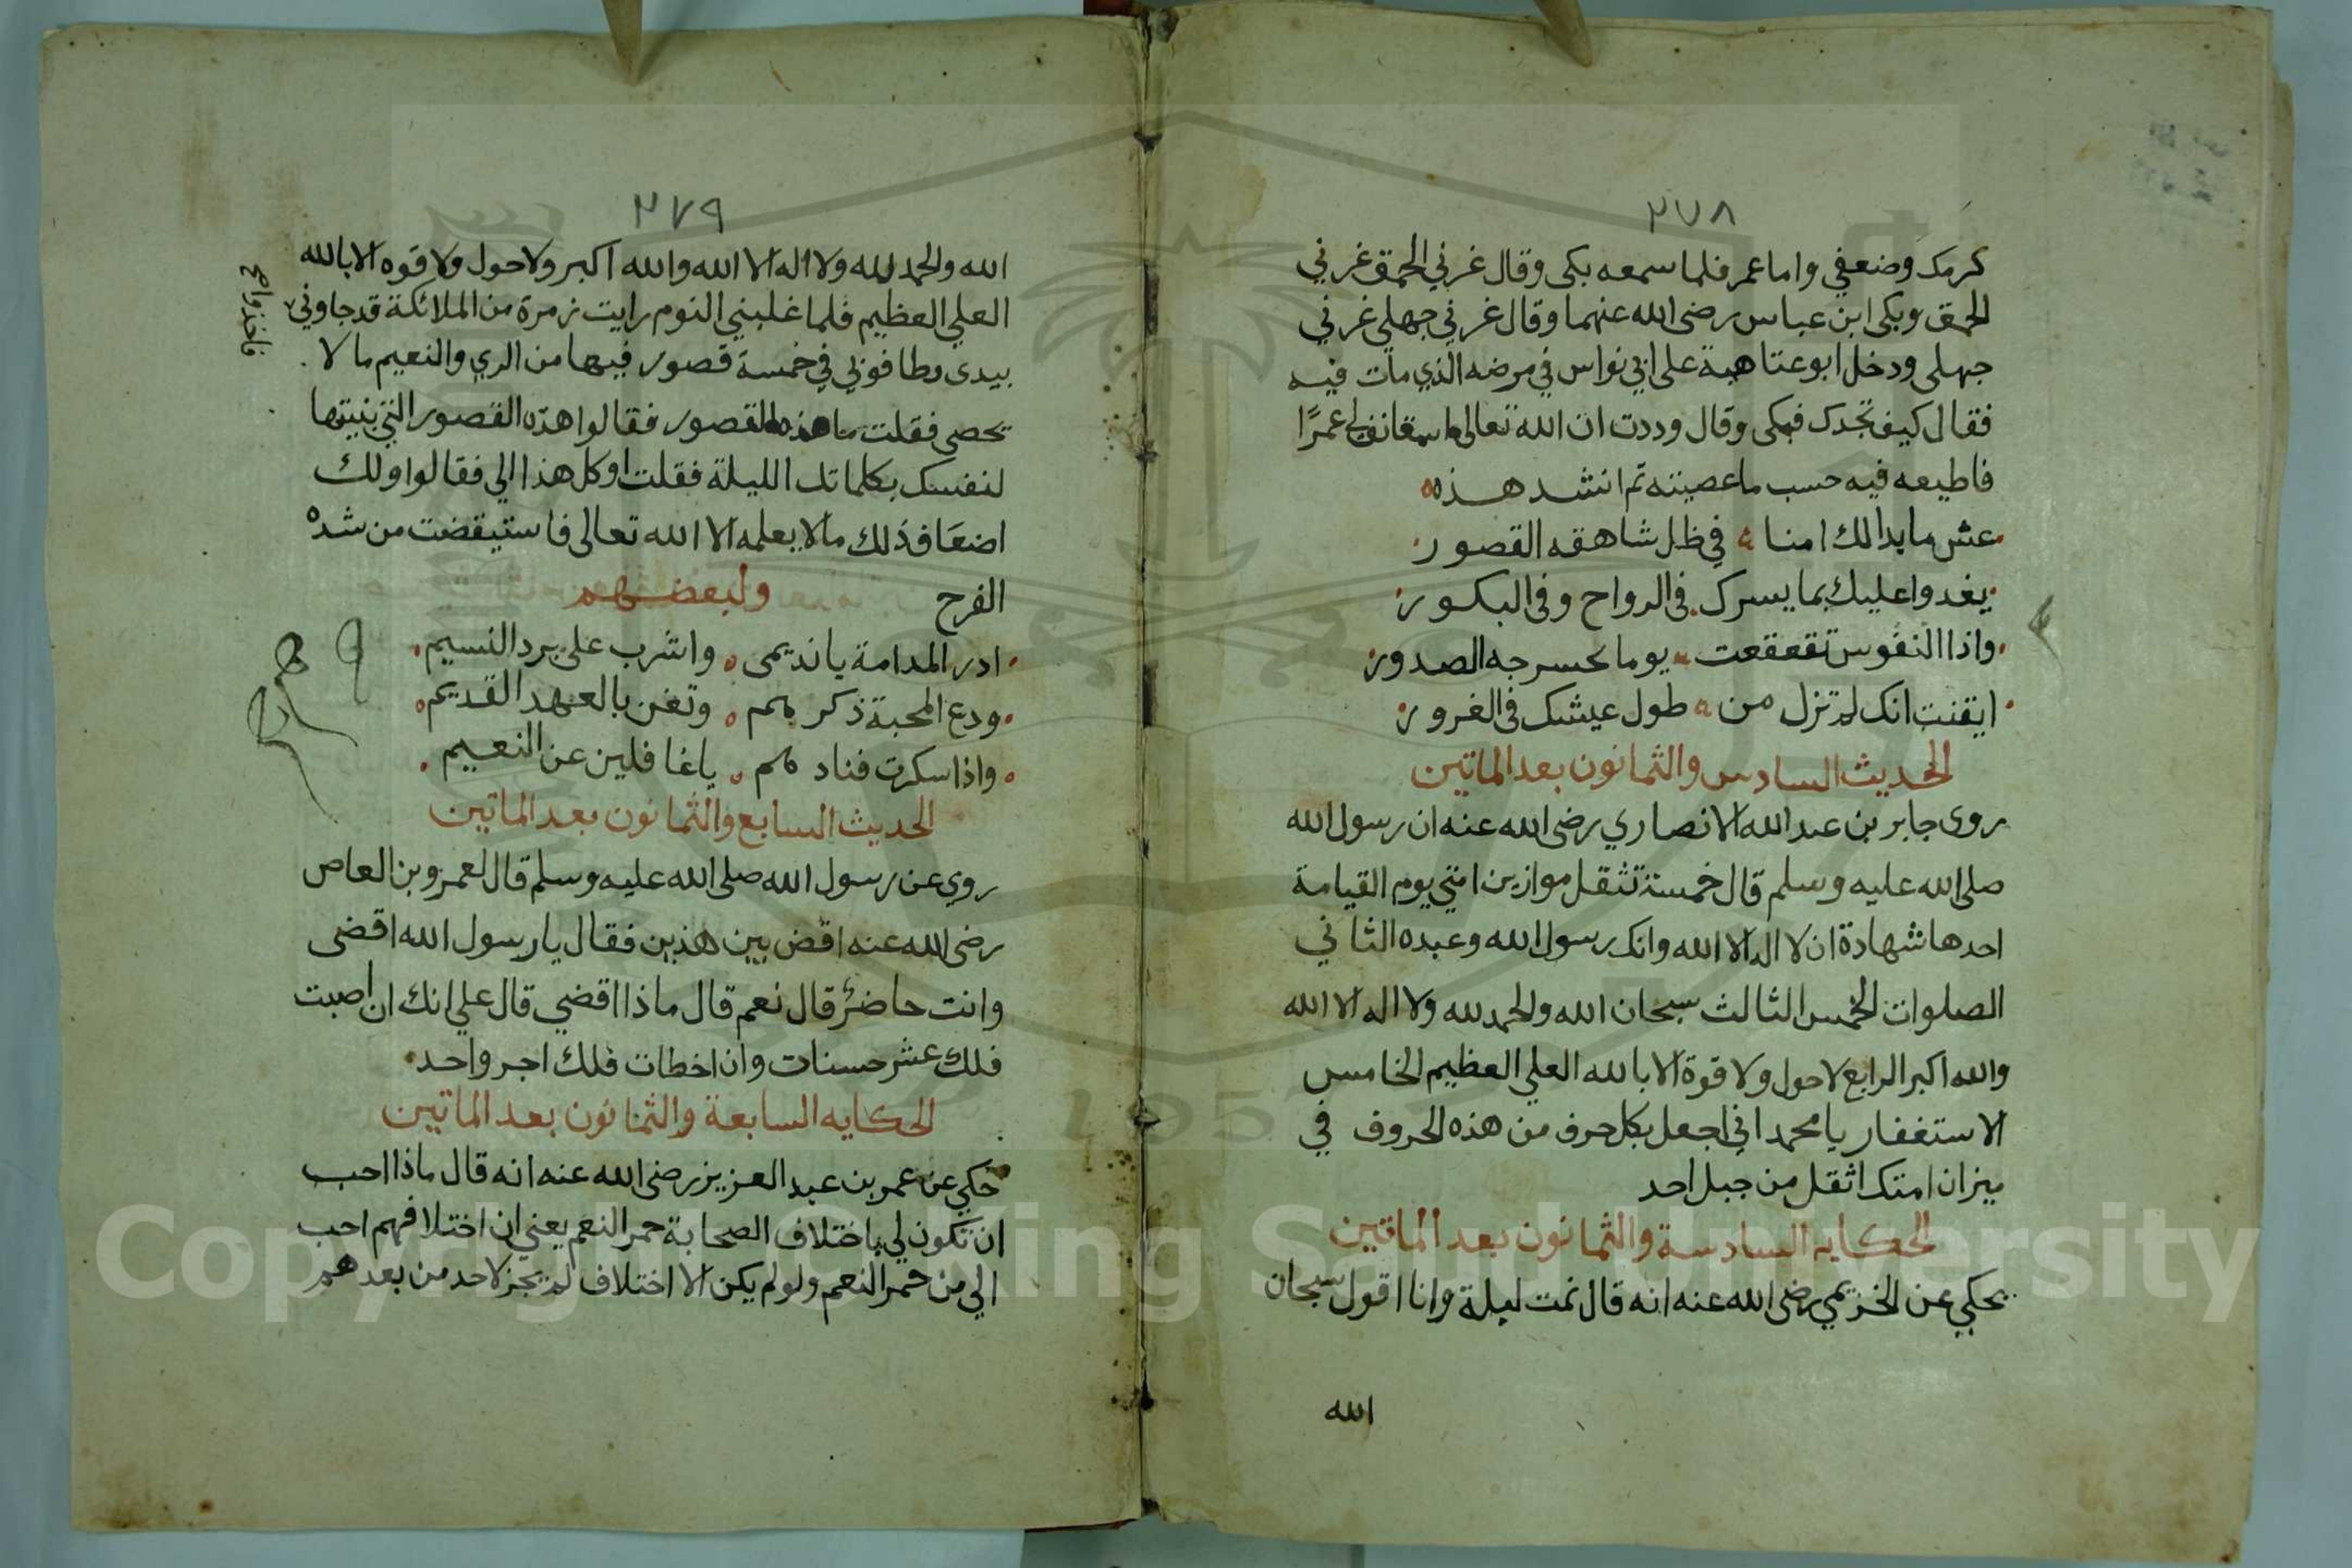 ٢٧٨
كرمك وضعفي واما عمر فلما سمعه بكى وقال غرني الحمق غرني
الحمق وبكى ابن عباس رضى الله عنهما وقال غرني جهلي غرني
جهلى ودخل ابو عتاهية على ابي نواس في مرضه الذي مات فيه
فقال كيف تجدك فبكى وقال وددت ان الله تعالى عمرًا
فاطيعه فيه حسب ما عصيته ثم انشد هذه
عش ما بدالك امنا في ظل شاهقه القصور
يغدوا عليك بما يسرك في الرواح وفى البكور
واذا النفوس تقعقعت يوما بحسرجه الصدور
ايقنت انك لم تزل من طول عيشك فى الغرور
الحديث السادس والثمانون بعد الماتين
روى جابر بن عبد الله الانصاري رضى الله عنه ان رسول الله
صلى الله عليه وسلم قال خمسة تثقل موازين امتي يوم القيامة
احدها شهادة ان لا اله الا الله وانك رسول الله وعبده الثاني
الصلوات الخمس الثالث سبحان الله والحمد لله ولا اله الا الله
والله اكبر الرابع لا حول ولا قوة الا بالله العلي العظيم الخامس
الاستغفار يا محمد اني اجعل بكل حرف من هذه الحروف في
ميزان امتك اثقل من جبل احد
الحكايه السادسة والثمانون بعد الماتين
يحكي عن الخزيمي رضى الله عنه انه قال نمت ليلة وانا اقول سبحان
الله
٢٧٩
الله والحمد لله ولا اله الا الله والله اكبر ولا حول ولا قوه الا بالله
العلي العظيم فلما غلبني النوم رايت زمرة من الملائكة قد جاوني
بيدى وطافوني في خمسة قصور فيها من الري والنعيم ما لا
يحصى فقلت ما هذه القصور فقالوا هذه القصور التي بنيتها
لنفسك بكلماتك الليلة فقلت اوكل هذا الي فقالوا ولك
اضعاف ذلك ما لا يعلمه الا الله تعالى فاستيقضت من شده
الفرح ولبعضهم
ادر المدامة يا نديمى واشرب على برد النسيم
ودع المحبة ذكر وتغن بالعهد القديم
واذا سكرت فناد يا غافلين عن النعيم
الحديث السابع والثمانون بعد الماتين
روي عن رسول الله صلى الله عليه وسلم قال لعمرو بن العاص
رضى الله عنه اقض بين هذين فقال يا رسول الله اقضى
وانت حاضر قال نعم قال ماذا اقضي قال علي انك ان اصبت
فلك عشر حسنات وان اخطات فلك اجر واحد
الحكايه السابعة والثمانون بعد الماتين
حكي عن عمر بن عبد العزيز رضى الله عنه انه قال ماذا احب
ان تكون لي باختلاف الصحابة حمر النعم يعني ان اختلافهم احب
الي من حمر النعم ولو لم يكن الاختلاف لم يجز لاحد من بعدهم
Copyright © King Saud University
1957